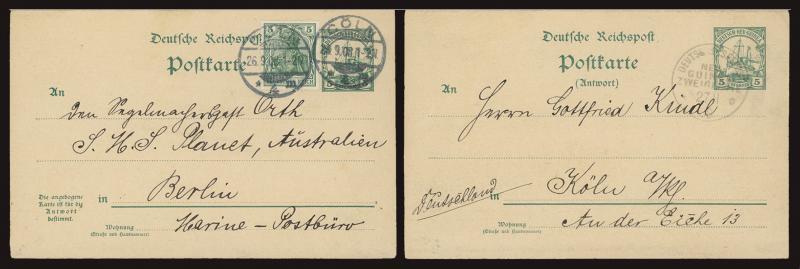 Deutsche Reichspost
Postkarte
CÖLN
26.9.08.1-2N
5
An
den Segelmachersgast Orth
S. H. S. Planet, Australien
Die angebogene
Karte ist für die
Antwort
bestimmt.
in Berlin
Marine-Postbüro
Wohnung
(Straße und Hausnummer)
Deutsche Reichspost
Postkarte
(Antwort)
5 5
An
Herrn Gottfried Kindl
Deutschland
in Köln a/Rh
Wohnung An der Eiche 13
(Straße und Hausnummer)